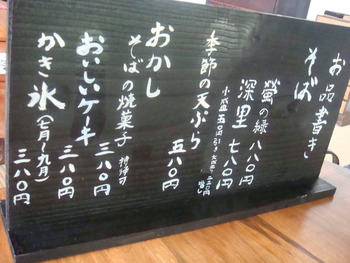 お品書き
そば
螢の緑 八八〇円
深里 七八〇円
季節の天ぷら 五八〇円
おかし
そばの焼菓子 持帰可 三八〇円
おいしいケーキ 三八〇円
かき氷(七月〜九月) 三八〇円